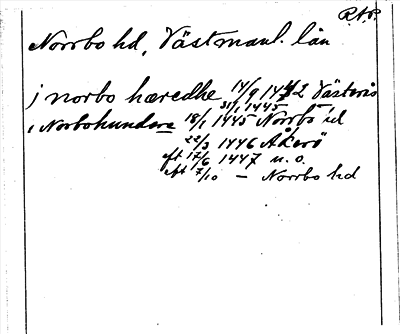 R.A.P.
Norrbo hd, Västmanl. län
i norbo hæredhe 14/9 1442 Västerås
31/1 1445 —
i Norbohundare 18/1 1445 Norrbo hd
22/3 1446 Åkerö
eft 17/6 1447 u. o.
eft 7/10 — Norrbo hd